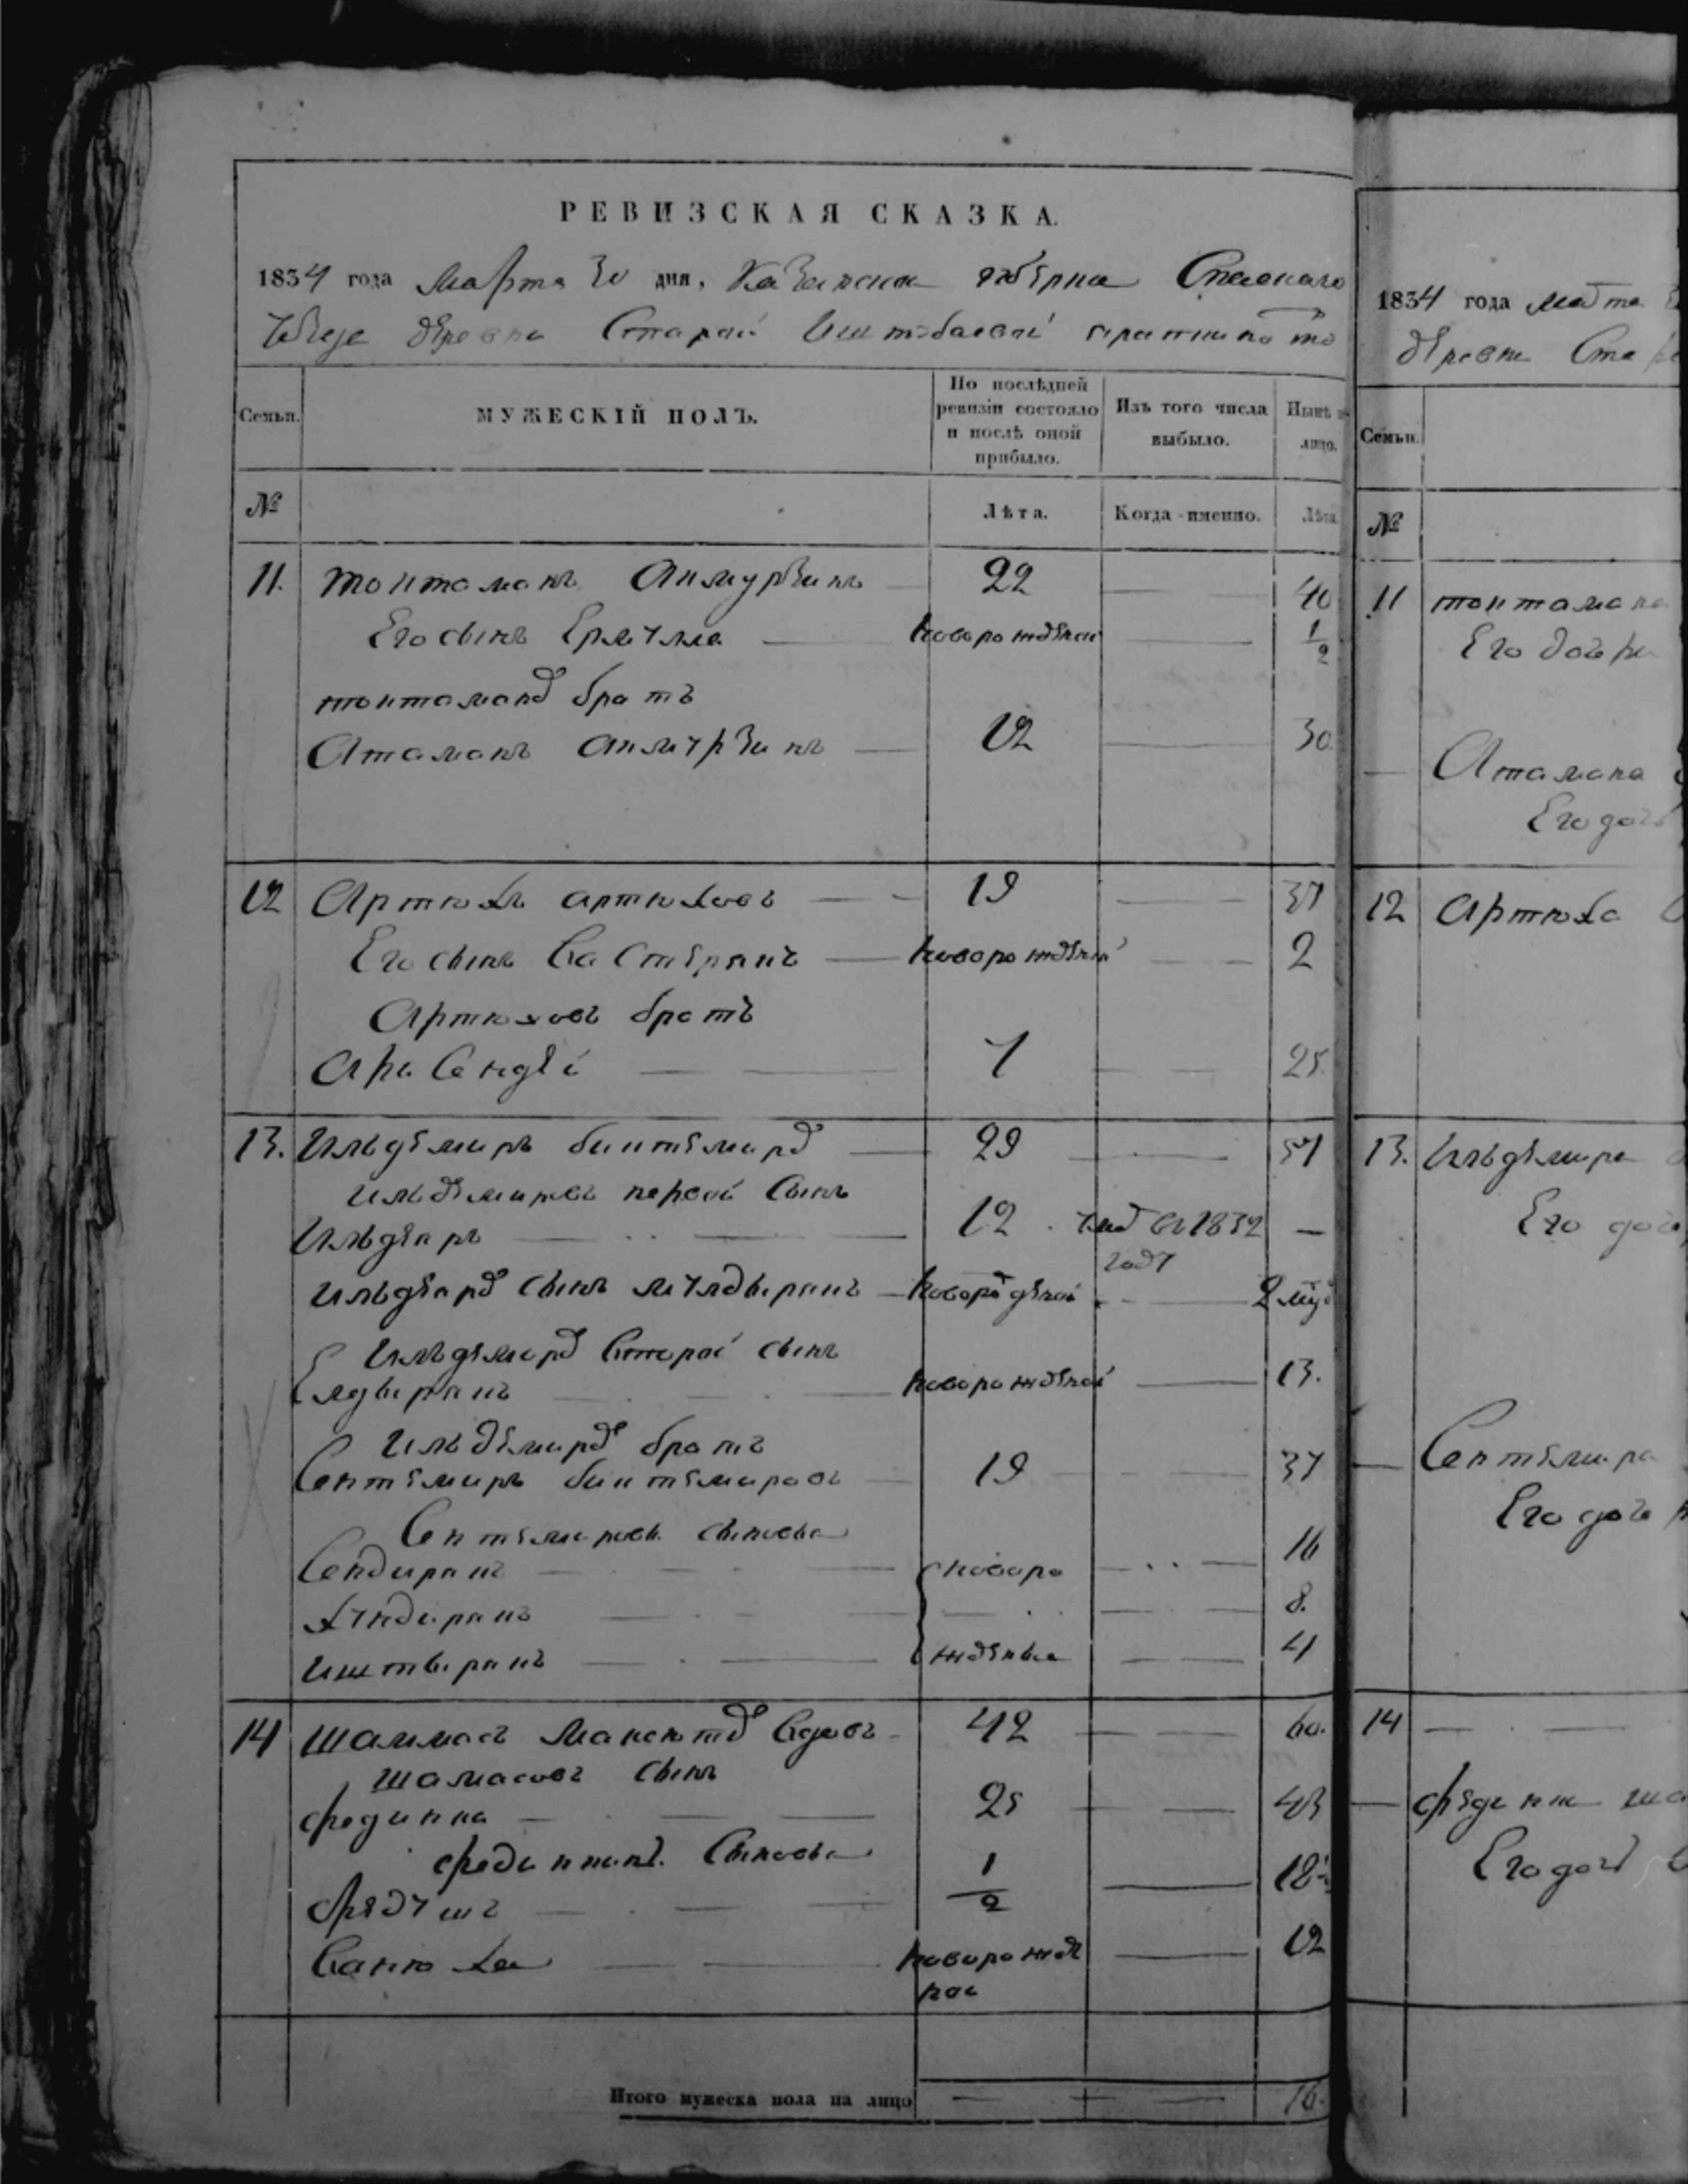 РЕВИЗСКАЯ СКАЗКА.
1834 года Марта 30 дня, Казанской губерна Спаскаго
уезде деревни Старай Иштебаевай
Семьи. МУЖЕСКІЙ ПОЛЪ. По послѣдней ревизіи состояло и послѣ оной прибыло. Изъ того числа выбыло. Нынѣ на лицо.
№ Лѣта. Когда именно. Лѣта
11. тоитаманъ Анмурзинъ 22 40
Его сынъ новорожденой 1/2
тоитаманов братъ
Атаманъ анмурзинъ 12 30
12 Артюхъ артюховъ 19 37
Его сынъ новорожденой 2
Артюховъ братъ
7 25
13. Ильдемиръ биитемиров 29 57
ильдемировъ первой сынъ
Ильдеаръ 12 умер въ 1832 году —
ильдеаров сынъ новорожденой 2
Ильдемиров второй сынъ
новорожденой 13.
Ильдемиров братъ
Сентемиръ биитемировъ 19 37
Сентемировъ сыновья
Сендиранъ новоро 16
8.
жденые 4
14 Шаммасъ Максютов 42 60.
Шамасовъ сынъ
фединка 25 43
фединкины сыновья
Федушъ 1/2 18 1/2
Ванюха новорожденой 12
Итого мужеска пола на лицо 16.
1834 года
деревни Ста
Семьи.
№
11 тоитамана
Его дочери
Атамана
Его доч
12 Артюха
13. Ильдемира
Его доч
Сентемира
Его дочь
14
Его доч